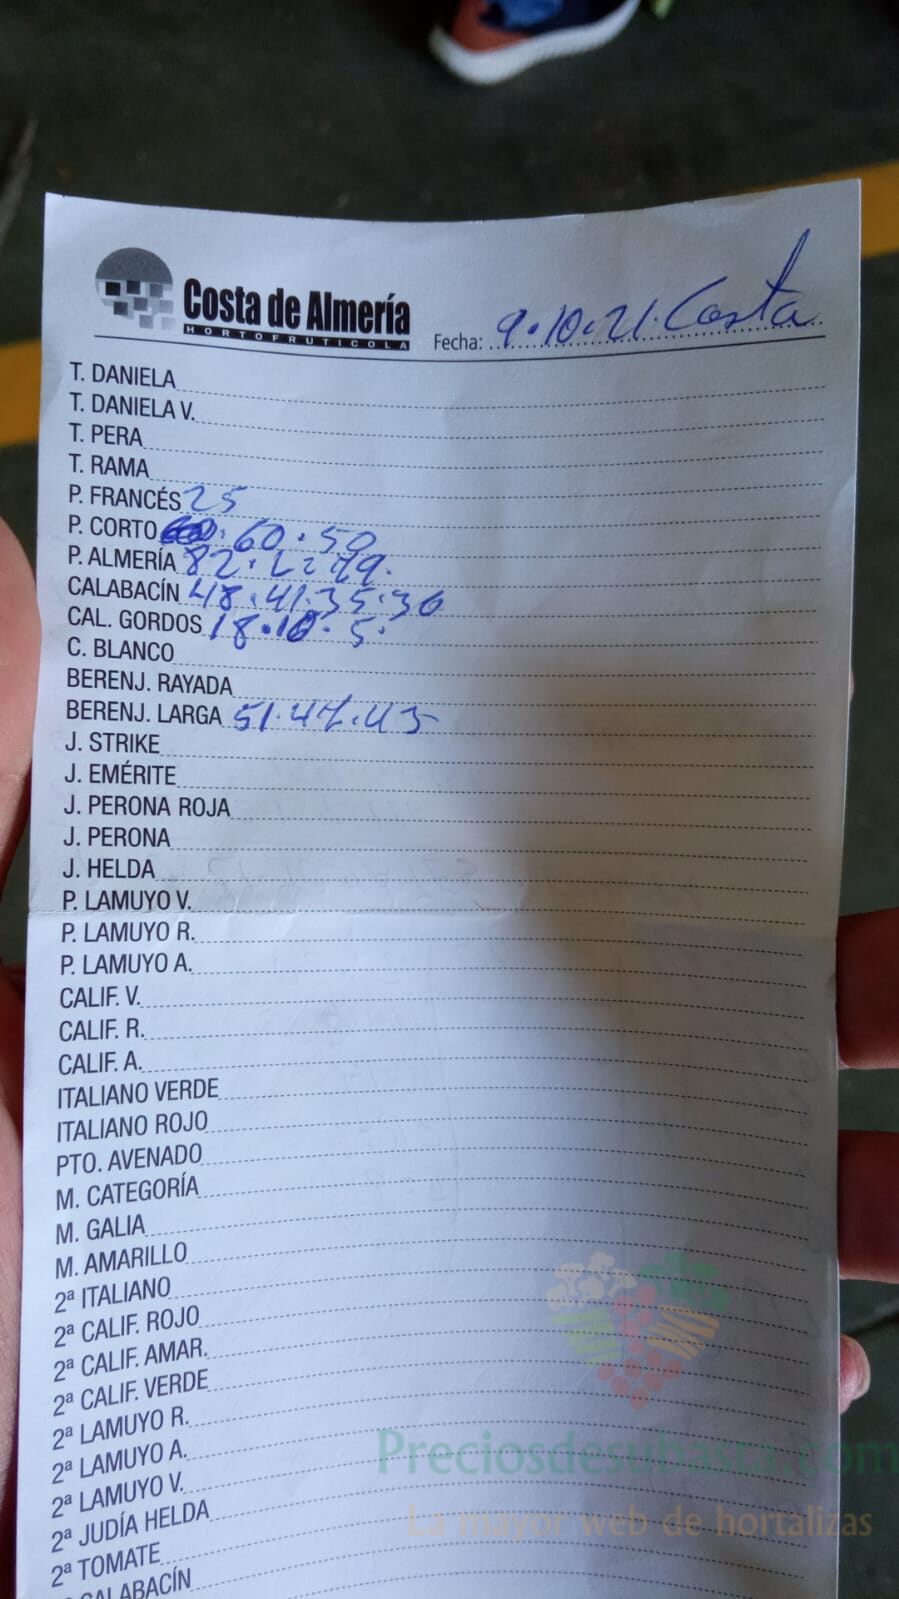 Costa de Almería
HORTOFRUTICOLA
Fecha: 9.10.21. Costa
T. DANIELA
T. DANIELA V.
T. PERA
T. RAMA
P. FRANCÉS 25
P. CORTO 60.50
P. ALMERÍA 82.
CALABACÍN 48.41.35.30
CAL. GORDOS 18.10.5.
C. BLANCO
BERENJ. RAYADA
BERENJ. LARGA 51.47.45
J. STRIKE
J. EMÉRITE
J. PERONA ROJA
J. PERONA
J. HELDA
P. LAMUYO V.
P. LAMUYO R.
P. LAMUYO A.
CALIF. V.
CALIF. R.
CALIF. A.
ITALIANO VERDE
ITALIANO ROJO
PTO. AVENADO
M. CATEGORÍA
M. GALIA
M. AMARILLO
2ª ITALIANO
2ª CALIF. ROJO
2ª CALIF. AMAR.
2ª CALIF. VERDE
2ª LAMUYO R.
2ª LAMUYO A.
2ª LAMUYO V.
2ª JUDÍA HELDA
2ª TOMATE
CALABACÍN
Preciosdesubasta.com
La mayor web de hortalizas